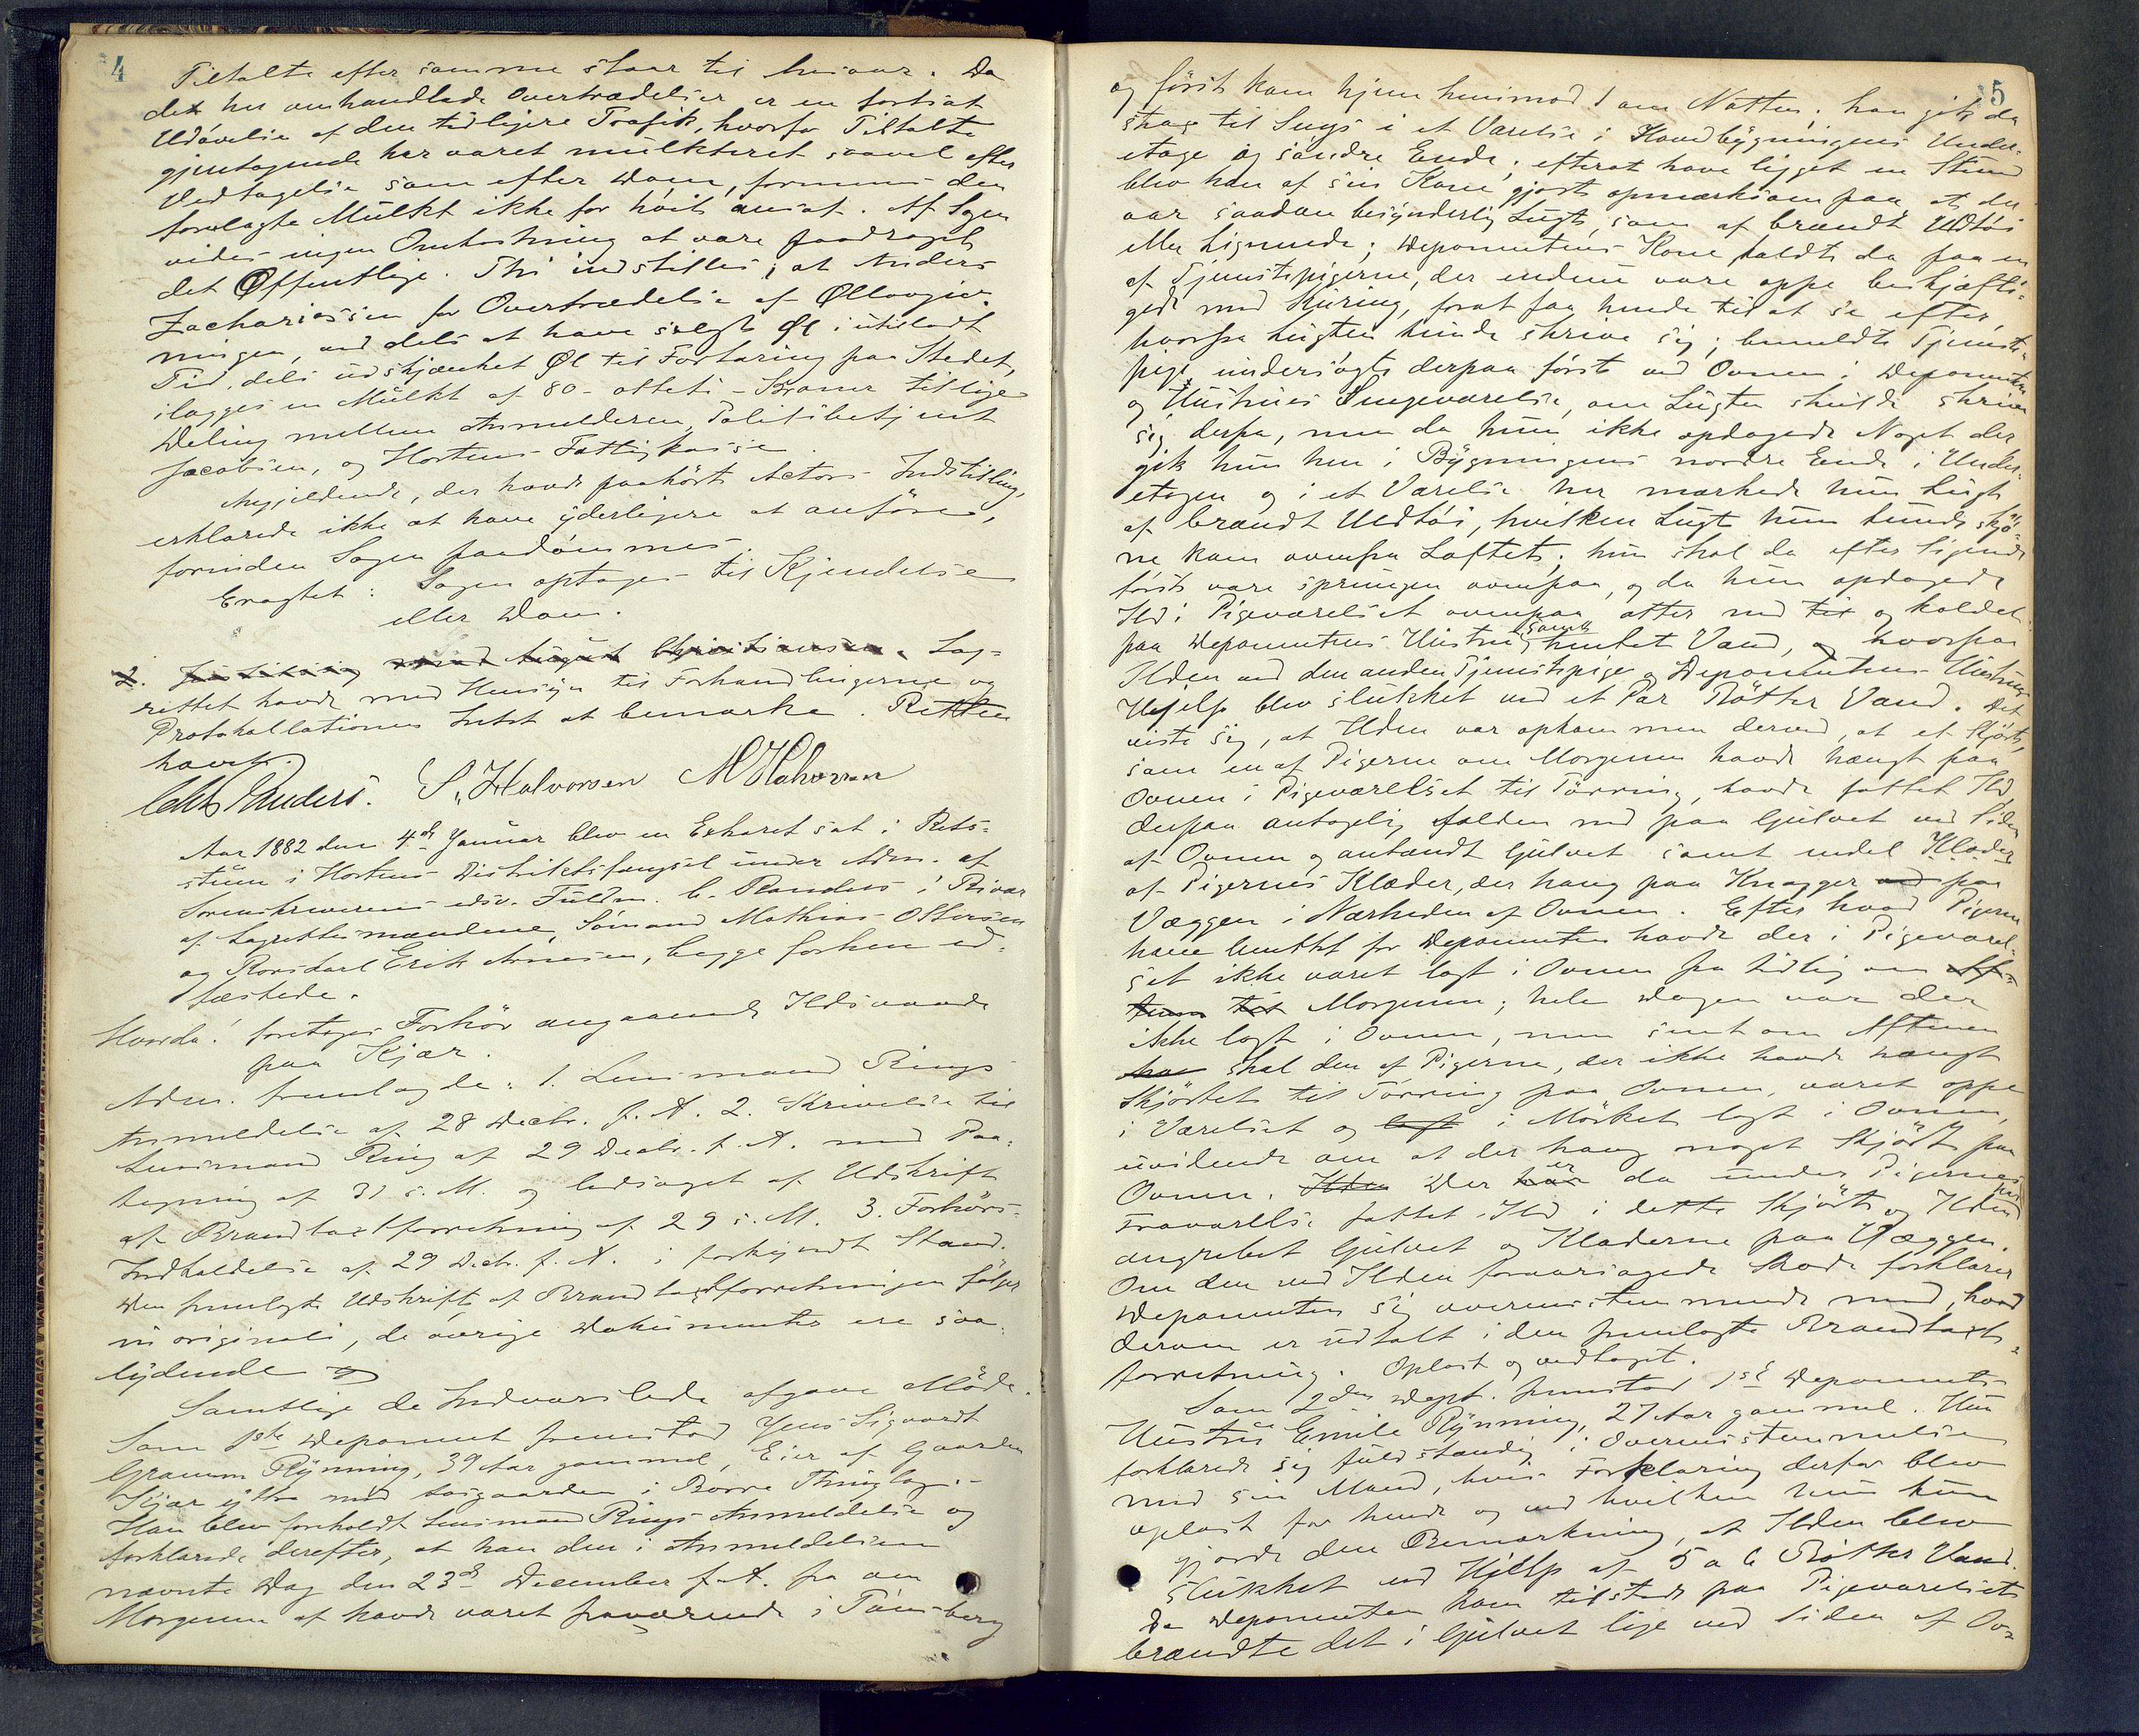 4
Tiltalte efter samme staar til Ansvar. Da
det her omhandlede Overtrædelser er en fortsat
Udøvelse af den tidligere Trafik, hvorfor Tiltalte
gjentagende har været mulkteret saavel efter
Vedtagelse som efter Dom, formenes den
forelagte Mulkt ikke for høit ansat. Af Sagen
vides ingen Omkostning at være paadraget
det Offentlige. Thi indstilles; at Anders
Zachariassen for Overtrædelse af Øllovgiv-
ningen, ved dels at have solgt Øl i utilladt
Tid, dels udskjænket Øl til Fortæring paa Stedet,
ilægges en Mulkt af 80 - otteti - Kroner til lige
Deling mellem Anmelderen, Politibetjent
Jacobsen, og Hortens Fattigkasse.
Angjældende, der havde paahørt Actors Indstilling,
erklærede ikke at have yderligere at anføre,
forinden Sagen paadømmes.
Eragtet: Sagen optages til Kjendelse
eller Dom.
2. Justitssag mod August Christiansen. Lag-
rettet havde med Hensyn til Forhandlingerne og
Protokollationen Intet at bemærke. Retten
hævet.
S. Halvorsen M Halvorsen
Aar 1882 den 4de Januar blev en Extraret sat i Rets-
stuen i Hortens Distriktsfængsel under Adm. af
Sorenskriverens edsv. Fuldm. C. Randers i Nærvær
af Lagrettesmændene, Sømand Mathias Ottersen
og Rorskarl Erik Arnesen, begge forhen ed-
fæstede.
Hvorda! foretoges Forhør angaaende Ildsvaade
paa Kjær.
Adm. fremlagde: 1. Lensmand Rings
Anmeldelse af 28 Decbr. f. A. 2. Skrivelse til
Lensmand Ring af 29 Decbr. f. A. med Paa-
tegning af 31 s. M. og ledsaget af Udskrift
af Brandtaxtforretning af 29 s. M. 3. Forhørs-
Indkaldelse af 29 Decbr. f. A. i forkyndt Stand.
Den fremlagte Udskrift af Brandtaxtforretningen følger
in originali, de øvrige Dokumenter ere saa-
lydende
Samtlige de Indvarslede afgave Møde.
Som 1ste Deponent fremstod Jens Sigvardt
Gramm Rynning, 39 Aar gammel, Eier af Gaarden
Kjær ytre med Aasgaarden i Borre Thinglag.
Han blev foreholdt Lensmand Rings Anmeldelse og
forklarede derefter, at han den i Anmeldelsen
nævnte Dag den 23de December f. A. fra om
Morgenen af havde været fraværende i Tønsberg
5
og først kom hjem henimod 1 om Natten; han gik da
strax til Sengs i et Værelse i Hovedbygningens Under-
etage og søndre Ende; efterat have ligget en Stund
blev han af sin Kone gjort opmærksom paa at der
var saadan besynderlig Lugt, som af brændt Uldtøi
eller Lignende; Deponentens Kone kaldte da paa en
af Tjenestepigerne, der endnu vare oppe beskjæfti-
gede med Skuring, forat faa hende til at se efter,
hvorfra Lugten kunde skrive sig; bemeldte Tjeneste-
pige undersøgte derpaa først ved Ovnen i Deponenten
og Hustrues Sengeværelse, om Lugten skulde skrive
sig derfra, men da hun ikke opdagede Noget der
gik hun hen i Bygningens nordre Ende i Under-
etagen og i et Værelse her mærkede hun Lugt
af brændt Uldtøi, hvilken Lugt hun kunde skjø-
ne kom ovenfra Loftet; hun skal da efter Sigende
først være sprungen ovenpaa, og da hun opdagede
Ild i Pigeværelset ovenpaa atter ned til og kaldet
paa Deponentens Hustru, samt hentet Vand, og hvorpaa
Ilden ved den anden Tjenestepige og Deponentens Hustrues
Hjelp blev slukket ved et Par Bøtter Vand. Det
viste sig, at Ilden var opkommen derved, at et Skjørt,
som en af Pigerne om Morgenen havde hængt paa
Ovnen i Pigeværelset til Tørring, havde fattet Ild,
derpaa antagelig falden ned paa Gulvet ved Siden
af Ovnen og antændt Gulvet samt endel Klæder
af Pigernes Klæder, der hang paa Knagger ved paa
Væggen i Nærheden af Ovnen. Efter hvad Pigerne
have berettet for Deponenten havde der i Pigeværel-
set ikke været lagt i Ovnen fra tidlig om Af-
tenen til Morgenen; hele Dagen var der
ikke lagt i Ovnen, men sent om Aftenen
har skal den af Pigerne, der ikke havde hængt
Skjørtet til Tørring paa Ovnen, været oppe
i Værelset og lagt i Mørket lagt i Ovnen,
uvidende om at der hang noget Skjørt paa
Ovnen. Ilden Der har er da under Pigernes
Fraværelse fattet Ild i dette Skjørt og Ilden har
angrebet Gulvet og Klæderne paa Væggen.
Om den ved Ilden foraarsagede Skade forklarer
Deponenten sig overensstemmende med, hvad
derom er udtalt i den fremlagte Brandtaxt-
forretning. Oplæst og vedtaget.
Som 2den Depnt. fremstod 1ste Deponents
Hustru Emilie Rynning, 27 Aar gammel. Hun
forklarede sig fuldstændig i Overensstemmelse
med sin Mand, hvis Forklaring derfor blev
oplæst for hende og ved hvilken hun kun
gjorde den Bemærkning, at Ilden blev
slukket ved Hjelp af 5 a 6 Bøtter Vand.
Da Deponenten kom tilstede paa Pigeværelset
brændte det i Gulvet lige ved Siden af Ov-